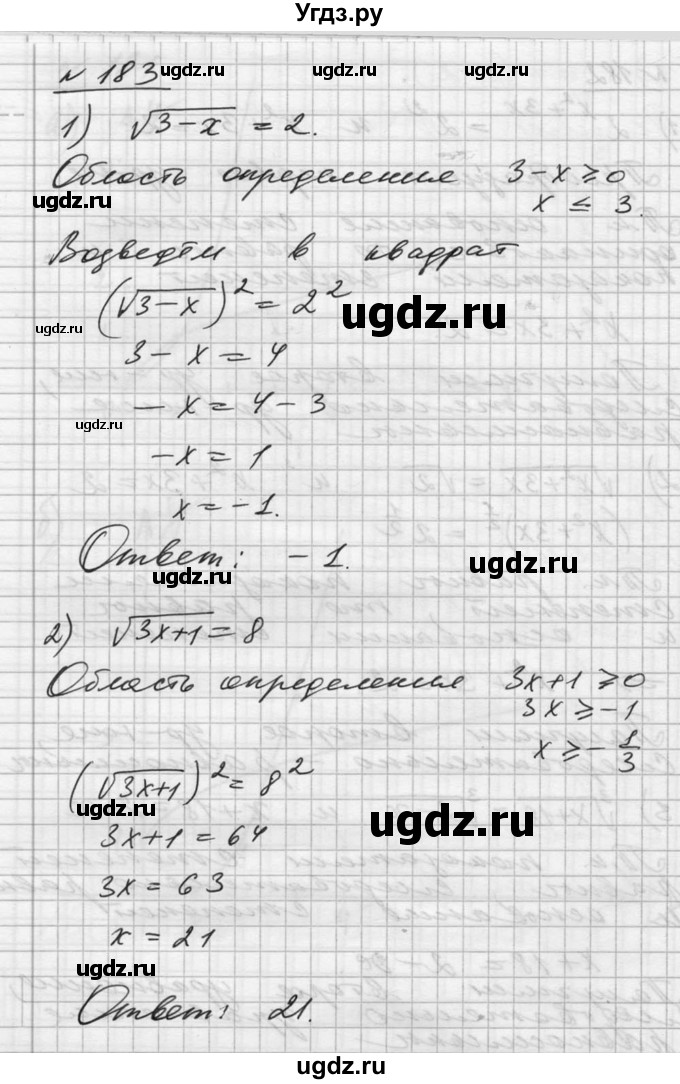 Угдз.ру
№ 183
ugdz.ru
ugdz.ru
1) √3-x = 2.
Область определения 3-x ≥ 0
ugdz.ru
x ≤ 3.
Возведём в квадрат
(√3-x)² = 2²
ugdz.ru
ugdz.ru
3 - x = 4
- x = 4 - 3
ugdz.ru
-x = 1
x = -1.
Ответ: -1.
ugdz.ru
ugdz.ru
2) √3x+1 = 8
Область определения 3x+1 ≥ 0
ugdz.ru
3x ≥ -1
x ≥ -1/3
(√3x+1)² = 8²
ugdz.ru
ugdz.ru
3x+1 = 64
3x = 63
x = 21
ugdz.ru
Ответ: 21.
ugdz.ru